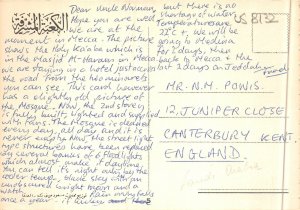 Dear Uncle Norman,
Hope you are well
We are at the
moment in Mecca. The picture
shows the Holy Kaaba which is
in the Masjid Al-Haram in Mecca
we are staying in a hotel just across
the road from the two minarets
you can see. This card however
has a slightly old picture of
the Mosque. Now the 2nd storey
is fully built, lighted and supplied
with fans. The Mosque is cleaned
every day, all day and it is
super night. Now the street light
type structures have been replaced
by several banks of floodlights
which almost make it daytime.
You can tell it's night only by the
lower temp, black sky with an
unobscured bright moon and a
warm Rain only falls
once a year. It
but there is no
shortage of water.
Temperatures are
22°C +. We will be
going to Medina
for 2 days, then
back to Mecca & the
last 2 days in Jeddah.
US 8T32
MR. N.M. POWIS.
12, JUNIPER CLOSE
CANTERBURY KENT
ENGLAND.